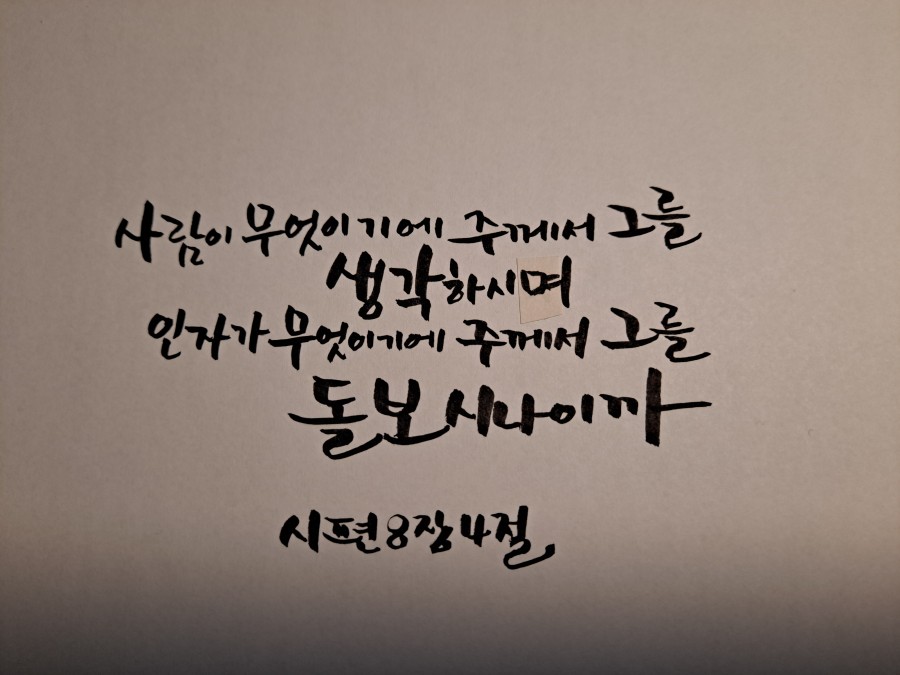 사람이 무엇이기에 주께서 그를
생각하시며
인자가 무엇이기에 주께서 그를
돌보시나이까
시편 8장 4절